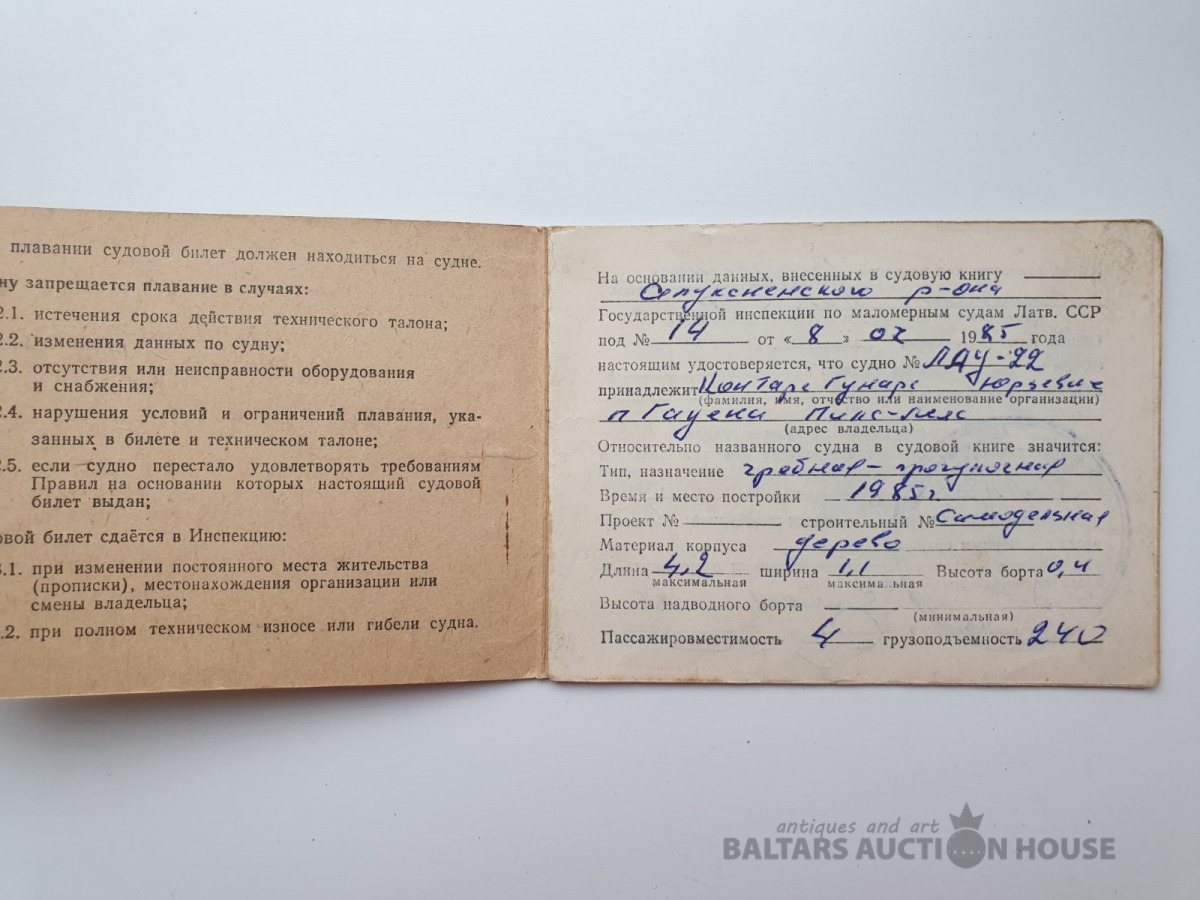 плавании судовой билет должен находиться на судне.
ну запрещается плавание в случаях:
2.1. истечения срока действия технического талона;
2.2. изменения данных по судну;
2.3. отсутствия или неисправности оборудования
и снабжения;
2.4. нарушения условий и ограничений плавания, ука-
занных в билете и техническом талоне;
2.5. если судно перестало удовлетворять требованиям
Правил на основании которых настоящий судовой
билет выдан;
овой билет сдаётся в Инспекцию:
3.1. при изменении постоянного места жительства
(прописки), местонахождения организации или
смены владельца;
.2. при полном техническом износе или гибели судна.
На основании данных, внесенных в судовую книгу
Алуксненского р-она
Государственной инспекции по маломерным судам Латв. ССР
под № 14 от «8» 02 1985 года
настоящим удостоверяется, что судно № ЛАУ-22
принадлежит Гунарс Юрьевич
(фамилия, имя, отчество или наименование организации)
п Гауени
(адрес владельца)
Относительно названного судна в судовой книге значится:
Тип, назначение гребная - прогулочная
Время и место постройки 1985г
Проект № строительный № Самодельная
Материал корпуса дерево
Длина 4,2 ширина 1,1 Высота борта 0,4
максимальная максимальная
Высота надводного борта
(минимальная)
Пассажировместимость 4 грузоподъемность 240
antiques and art
BALTARS AUCTION HOUSE